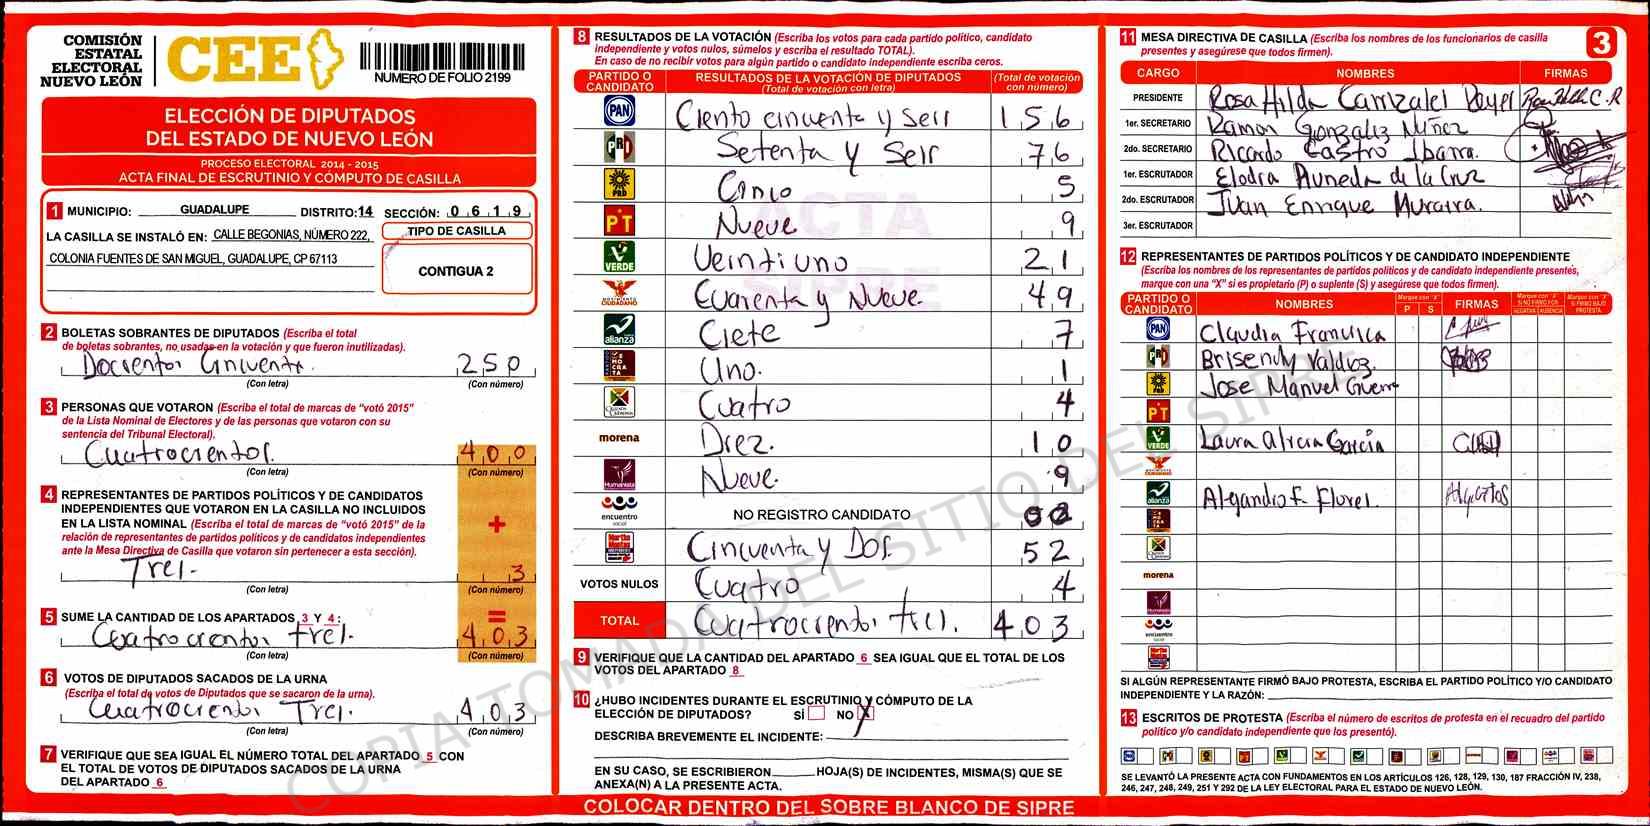 COMISIÓN
ESTATAL
ELECTORAL
NUEVO LEÓN
CEE
NUMERO DE FOLIO 2199
ELECCIÓN DE DIPUTADOS
DEL ESTADO DE NUEVO LEÓN
PROCESO ELECTORAL 2014 - 2015
ACTA FINAL DE ESCRUTINIO Y CÓMPUTO DE CASILLA
1 MUNICIPIO: GUADALUPE DISTRITO:14 SECCIÓN: 0 6 1 9
LA CASILLA SE INSTALÓ EN: CALLE BEGONIAS, NÚMERO 222,
COLONIA FUENTES DE SAN MIGUEL, GUADALUPE, CP 67113
TIPO DE CASILLA
CONTIGUA 2
2 BOLETAS SOBRANTES DE DIPUTADOS (Escriba el total
de boletas sobrantes, no usadas en la votación y que fueron inutilizadas).
Docientos Cincuenta 250
(Con letra) (Con número)
3 PERSONAS QUE VOTARON (Escriba el total de marcas de "votó 2015"
de la Lista Nominal de Electores y de las personas que votaron con su
sentencia del Tribunal Electoral).
Cuatrocientos. 400
(Con letra) (Con número)
4 REPRESENTANTES DE PARTIDOS POLÍTICOS Y DE CANDIDATOS
INDEPENDIENTES QUE VOTARON EN LA CASILLA NO INCLUIDOS
EN LA LISTA NOMINAL (Escriba el total de marcas de "votó 2015" de la
relación de representantes de partidos políticos y de candidatos independientes
ante la Mesa Directiva de Casilla que votaron sin pertenecer a esta sección).
+
Tres. 3
(Con letra) (Con número)
=
5 SUME LA CANTIDAD DE LOS APARTADOS 3 Y 4:
Cuatrocientos tres. 403
(Con letra) (Con número)
6 VOTOS DE DIPUTADOS SACADOS DE LA URNA
(Escriba el total de votos de Diputados que se sacaron de la urna).
Cuatrocientos Tres. 403
(Con letra) (Con número)
7 VERIFIQUE QUE SEA IGUAL EL NÚMERO TOTAL DEL APARTADO 5 CON
EL TOTAL DE VOTOS DE DIPUTADOS SACADOS DE LA URNA
DEL APARTADO 6
8 RESULTADOS DE LA VOTACIÓN (Escriba los votos para cada partido político, candidato
independiente y votos nulos, súmelos y escriba el resultado TOTAL).
En caso de no recibir votos para algún partido o candidato independiente escriba ceros.
PARTIDO O CANDIDATO RESULTADOS DE LA VOTACIÓN DE DIPUTADOS (Total de votación con letra) (Total de votación con número)
PAN Ciento cincuenta y Seis 156
PRD Setenta y Seis 76
PRD Cinco 5
PT Nueve 9
VERDE Veintiuno 21
MOVIMIENTO CIUDADANO Cuarenta y Nueve 49
alianza Ciete 7
DEMOCRATA Uno. 1
Cuatro 4
morena Diez. 10
Humanista Nueve. 9
encuentro social NO REGISTRO CANDIDATO
Cincuenta y Dos. 52
VOTOS NULOS Cuatro 4
TOTAL Cuatrocientos tres. 403
9 VERIFIQUE QUE LA CANTIDAD DEL APARTADO 6 SEA IGUAL QUE EL TOTAL DE LOS
VOTOS DEL APARTADO 8
10 ¿HUBO INCIDENTES DURANTE EL ESCRUTINIO Y CÓMPUTO DE LA
ELECCIÓN DE DIPUTADOS? SÍ NO X
DESCRIBA BREVEMENTE EL INCIDENTE:
EN SU CASO, SE ESCRIBIERON HOJA(S) DE INCIDENTES, MISMA(S) QUE SE
ANEXA(N) A LA PRESENTE ACTA.
COLOCAR DENTRO DEL SOBRE BLANCO DE SIPRE
11 MESA DIRECTIVA DE CASILLA (Escriba los nombres de los funcionarios de casilla
presentes y asegúrese que todos firmen).
3
CARGO NOMBRES FIRMAS
PRESIDENTE Rosa Hilda Carrizales
1er. SECRETARIO Ramon Gonzalez Niñez
2do. SECRETARIO Ricardo Castro Ibarra.
1er. ESCRUTADOR Elodia Puneda de la Cruz
2do. ESCRUTADOR Juan Enrique Muraira.
3er. ESCRUTADOR
12 REPRESENTANTES DE PARTIDOS POLÍTICOS Y DE CANDIDATO INDEPENDIENTE
(Escriba los nombres de los representantes de partidos políticos y de candidato independiente presentes,
marque con una "X" si es propietario (P) o suplente (S) y asegúrese que todos firmen).
PARTIDO O CANDIDATO NOMBRES Marque con "X" P S FIRMAS Marque con "X" SI NO FIRMÓ POR NEGATIVA AUSENCIA Marque con "X" SI FIRMÓ BAJO PROTESTA
PAN Claudia Francisca
PRD Brisendy Valdez
PRD Jose Manuel Guerra
PT
VERDE Laura Alicia Garcia
alianza Alejandro F. Flores.
morena
Humanista
encuentro social
SI ALGÚN REPRESENTANTE FIRMÓ BAJO PROTESTA, ESCRIBA EL PARTIDO POLÍTICO Y/O CANDIDATO
INDEPENDIENTE Y LA RAZÓN:
13 ESCRITOS DE PROTESTA (Escriba el número de escritos de protesta en el recuadro del partido
político y/o candidato independiente que los presentó).
SE LEVANTÓ LA PRESENTE ACTA CON FUNDAMENTOS EN LOS ARTÍCULOS 126, 128, 129, 130, 187 FRACCIÓN IV, 238,
246, 247, 248, 249, 251 Y 292 DE LA LEY ELECTORAL PARA EL ESTADO DE NUEVO LEÓN.
ACTA
SIPRE
COPIA TOMADA DEL SITIO DEL SIPRE